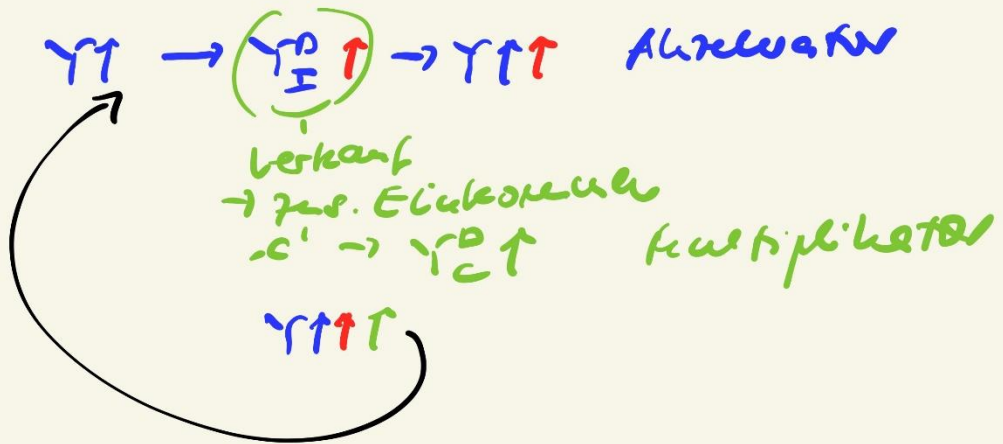 Y↑ → (Y^D_I ↑) → Y↑↑ Akzelerator
Verkauf
→ zus. Einkommen
·c' → Y^D_C ↑ Multiplikator
Y↑↑↑